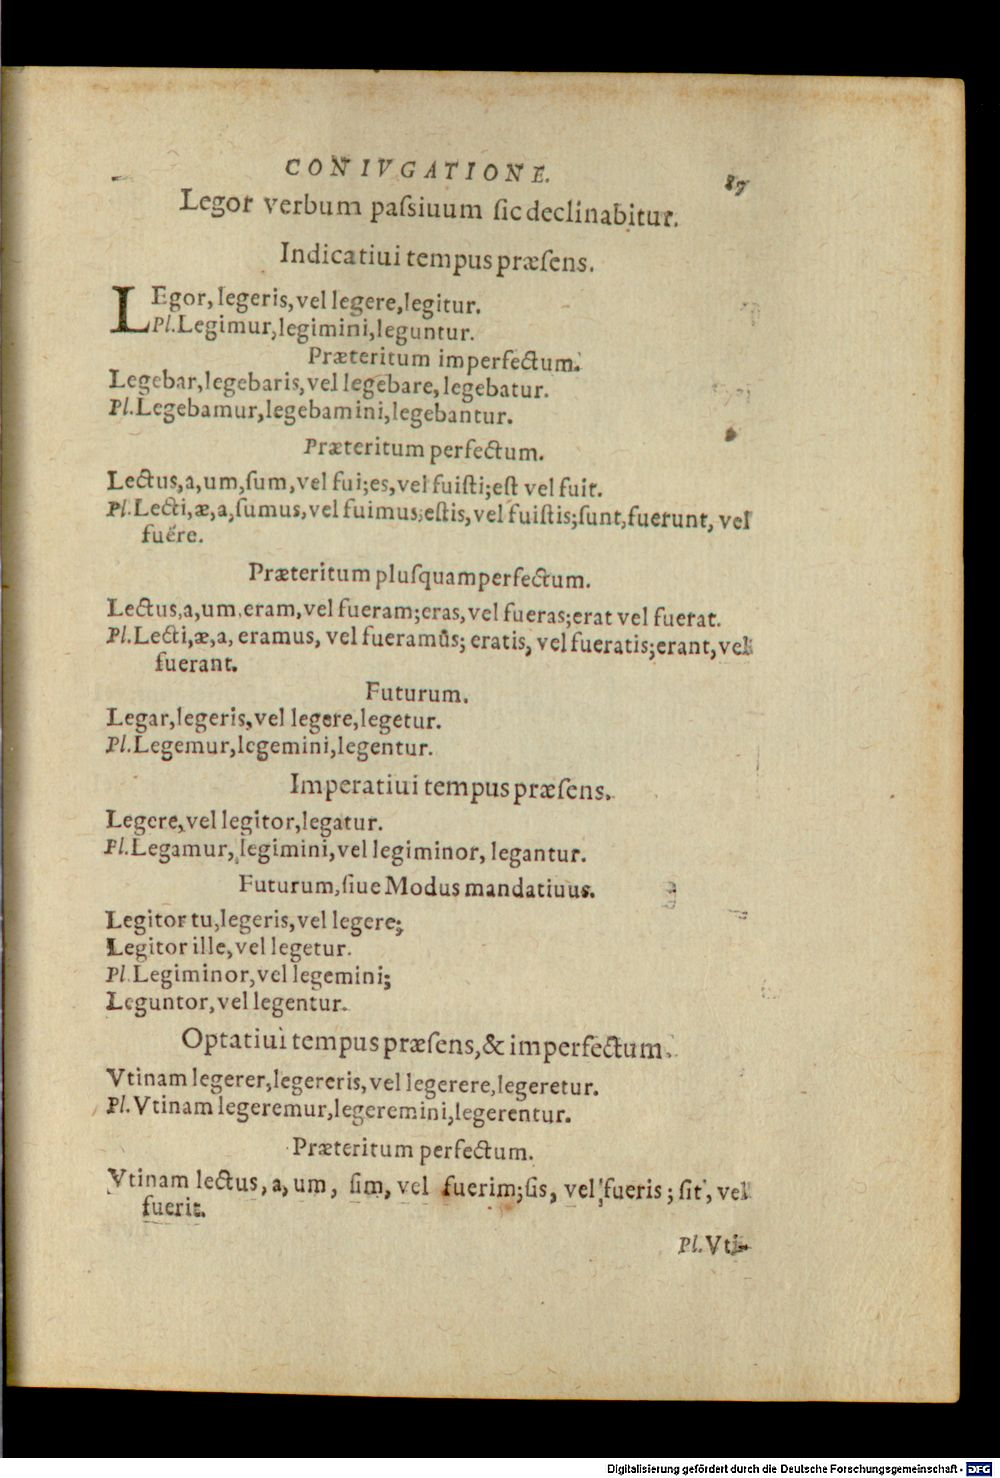 CONIVGATIONE.
87
Legor verbum paſsiuum ſic declinabitur.
Indicatiui tempus præſens.
LEgor, legeris, vel legere, legitur.
Pl. Legimur, legimini, leguntur.
Præteritum imperfectum.
Legebar, legebaris, vel legebare, legebatur.
Pl. Legebamur, legebamini, legebantur.
Præteritum perfectum.
Lectus, a, um, ſum, vel fui; es, vel fuiſti; eſt vel fuit.
Pl. Lecti, æ, a, ſumus, vel fuimus; eſtis, vel fuiſtis; ſunt, fuerunt, vel
fuére.
Præteritum pluſquamperfectum.
Lectus, a, um, eram, vel fueram; eras, vel fueras; erat vel fuerat.
Pl. Lecti, æ, a, eramus, vel fueramus; eratis, vel fueratis; erant, vel
fuerant.
Futurum.
Legar, legeris, vel legere, legetur.
Pl. Legemur, legemini, legentur.
Imperatiui tempus præſens.
Legere, vel legitor, legatur.
Pl. Legamur, legimini, vel legiminor, legantur.
Futurum, ſiue Modus mandatiuus.
Legitor tu, legeris, vel legere;
Legitor ille, vel legetur.
Pl. Legiminor, vel legemini;
Leguntor, vel legentur.
Optatiui tempus præſens, & imperfectum.
Vtinam legerer, legereris, vel legerere, legeretur.
Pl. Vtinam legeremur, legeremini, legerentur.
Præteritum perfectum.
Vtinam lectus, a, um, ſim, vel fuerim; ſis, vel fueris; ſit, vel
fuerit.
Pl. Vti-
Digitalisierung gefördert durch die Deutsche Forschungsgemeinschaft - DFG